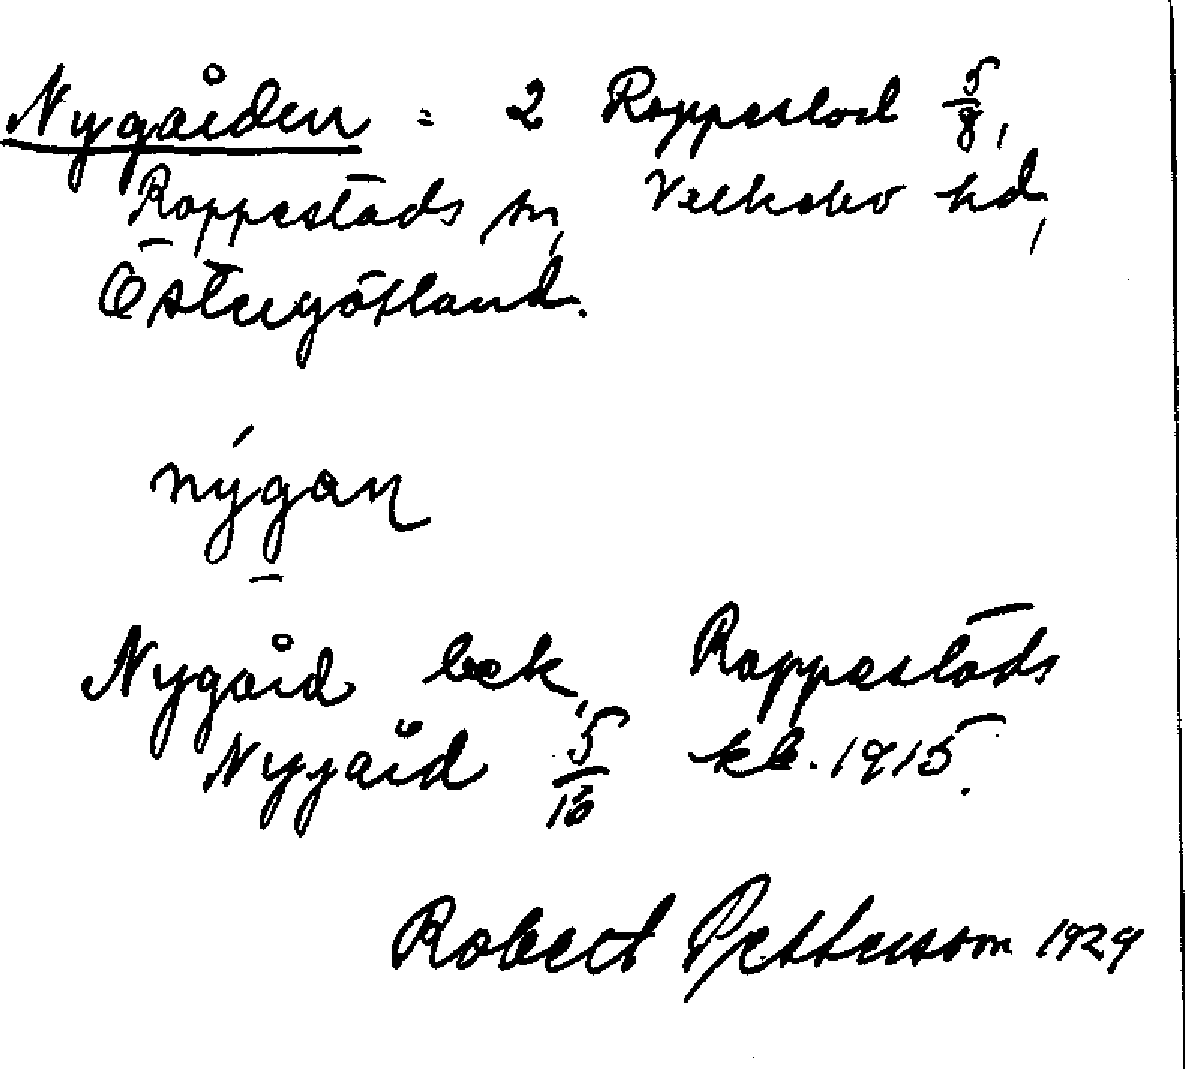 Nygården = 2 Rappestad 5/8,
Rappestads sn, Valkebo hd,
Östergötland.
nýgaɳ
Nygård bek, Rappestads
Nygård 5/16 kb. 1915.
Robert Pettersson 1929